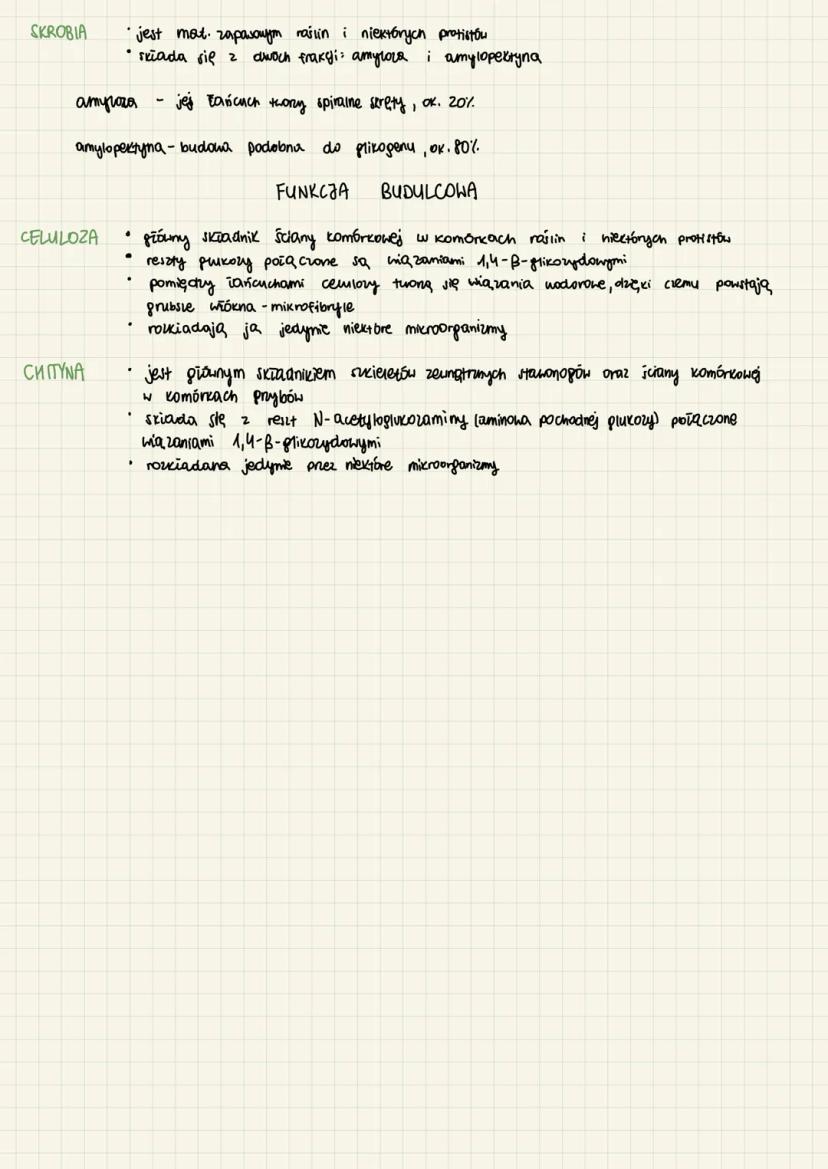 SKROBIA • jest mat. zapasowym roślin i niektórych protistów
• składa się z dwóch frakcji: amyloza i amylopektyna
amyloza - jej łańcuch tworzy spiralne skręty, ok. 20%
amylopektyna - budowa podobna do glikogenu, ok. 80%
FUNKCJA BUDULCOWA
CELULOZA • główny składnik ściany komórkowej w komórkach roślin i niektórych protistów
• reszty glukozy połączone są wiązaniami 1,4-β-glikozydowymi
• pomiędzy łańcuchami celulozy tworzą się wiązania wodorowe, dzięki czemu powstają
grubsze włókna - mikrofibryle
• rozkładają ją jedynie niektóre mikroorganizmy
CHITYNA • jest głównym składnikiem szkieletów zewnętrznych stawonogów oraz ściany komórkowej
w komórkach grzybów
• składa się z reszt N-acetyloglukozaminy (aminowa pochodnej glukozy) połączone
wiązaniami 1,4-β-glikozydowymi
• rozkładana jedynie przez niektóre mikroorganizmy